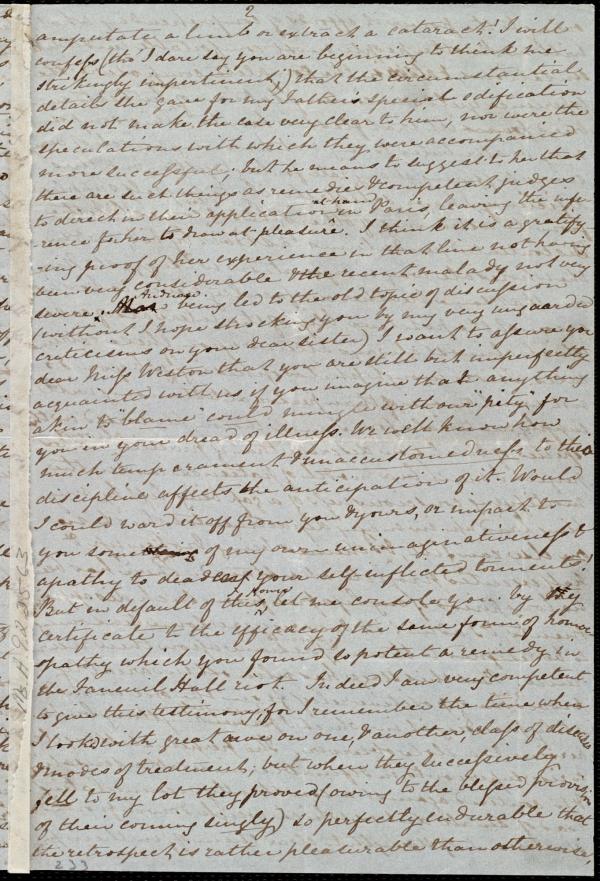 2
amputate a limb or extract a cataract! I will
confess (tho' I dare say you are beginning to think me
strikingly impertinent,) that the circumstantial
details she gave for my Father's special edification
did not make the case very clear to him, nor were the
speculations with which they were accompanied
more successful; but he means to suggest to her that
there are such things as remedies & competent judges
to direct in their application at hand in Paris, leaving the infe
-rence for her to draw at pleasure. I think it is a gratify
-ing proof of her experience in that line not having
been very considerable & the recent malady not very
severe. And now being led to the old topic of discussion
(without I hope shocking you by my very unguarded
criticisms on your dear sister) I want to assure you
dear Miss Weston that you are still but imperfectly
acquainted with us if you imagine that anything
akin to "blame" could mingle with our pity for
you in your dread of illness. We well know how
much temperament & unaccustomedness to the
discipline affects the anticipation of it. Would
I could ward it off from you & yours, or impart to
you some of my own unimaginativeness &
apathy to deaden your self-inflicted torments!
But in default of this power, let me console you by my
certificate to the efficacy of the same form of homoe
opathy which you found so potent a remedy in
the Faneuil Hall riot. Indeed I am very competent
to give this testimony, for I remember the time when
I look'd with great awe on one, & another, class of disease
& modes of treatment, but when they successively
fell to my lot they proved (owing to the blessed provision
of their coming singly) so perfectly endurable that
the retrospect is rather pleasurable than otherwise,
233